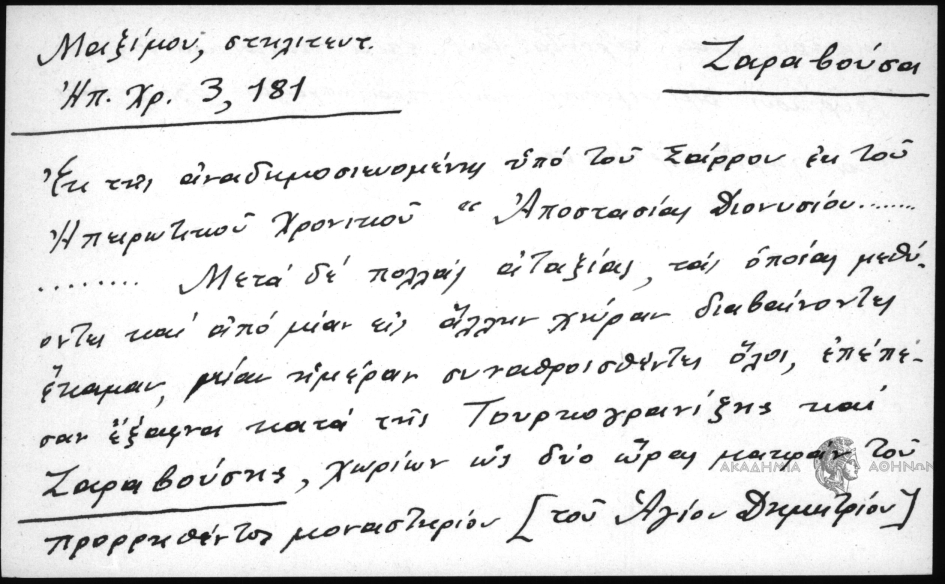 Μαξίμου, στηλιτευτ.
Ζαραβούσα
Ἠπ. Χρ. 3, 181
Ἐκ τῆς ἀναδημοσιευομένης ὑπό τοῦ Σάρρου ἐκ τοῦ
Ἠπειρωτικοῦ Χρονικοῦ "Ἀποστασίας Διονυσίου........
......... Μετά δέ πολλάς ἀταξίας, τάς ὁποίας μεθύ-
οντες καί ἀπό μίαν εἰς ἄλλην χώραν διαβαίνοντες
ἔκαμαν, μίαν ἡμέραν συναθροισθέντες ὅλοι, ἐπέπε-
σαν ἔξαφνα κατά τῆς Τουρκογρανίξης καί
Ζαραβούσης, χωρίων ὡς δύο ὥρας μακράν τοῦ
ΑΚΑΔΗΜΙΑ ΑΘΗΝΩΝ
προρρηθέντος μοναστηρίου [τοῦ Ἁγίου Δημητρίου]